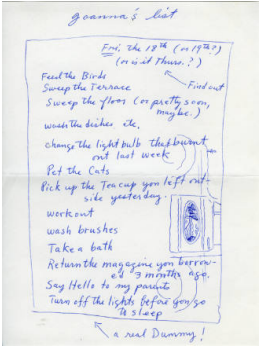 Joanna's list
Fri. the 18th (or 19th?)
(or is it Thurs.?)
Find out
Feed the Birds
Sweep the Terrace
Sweep the floor (or pretty soon,
maybe.)
wash the dishes, etc.
change the light bulb that burnt
out last week
Pet the Cats
Pick up the Teacup you left out-
side yesterday.
workout
wash brushes
Take a bath
Return the magazine you borrow-
ed 3 months ago.
Say Hello to my parents
Turn off the lights before you go
to sleep
a real Dummy!